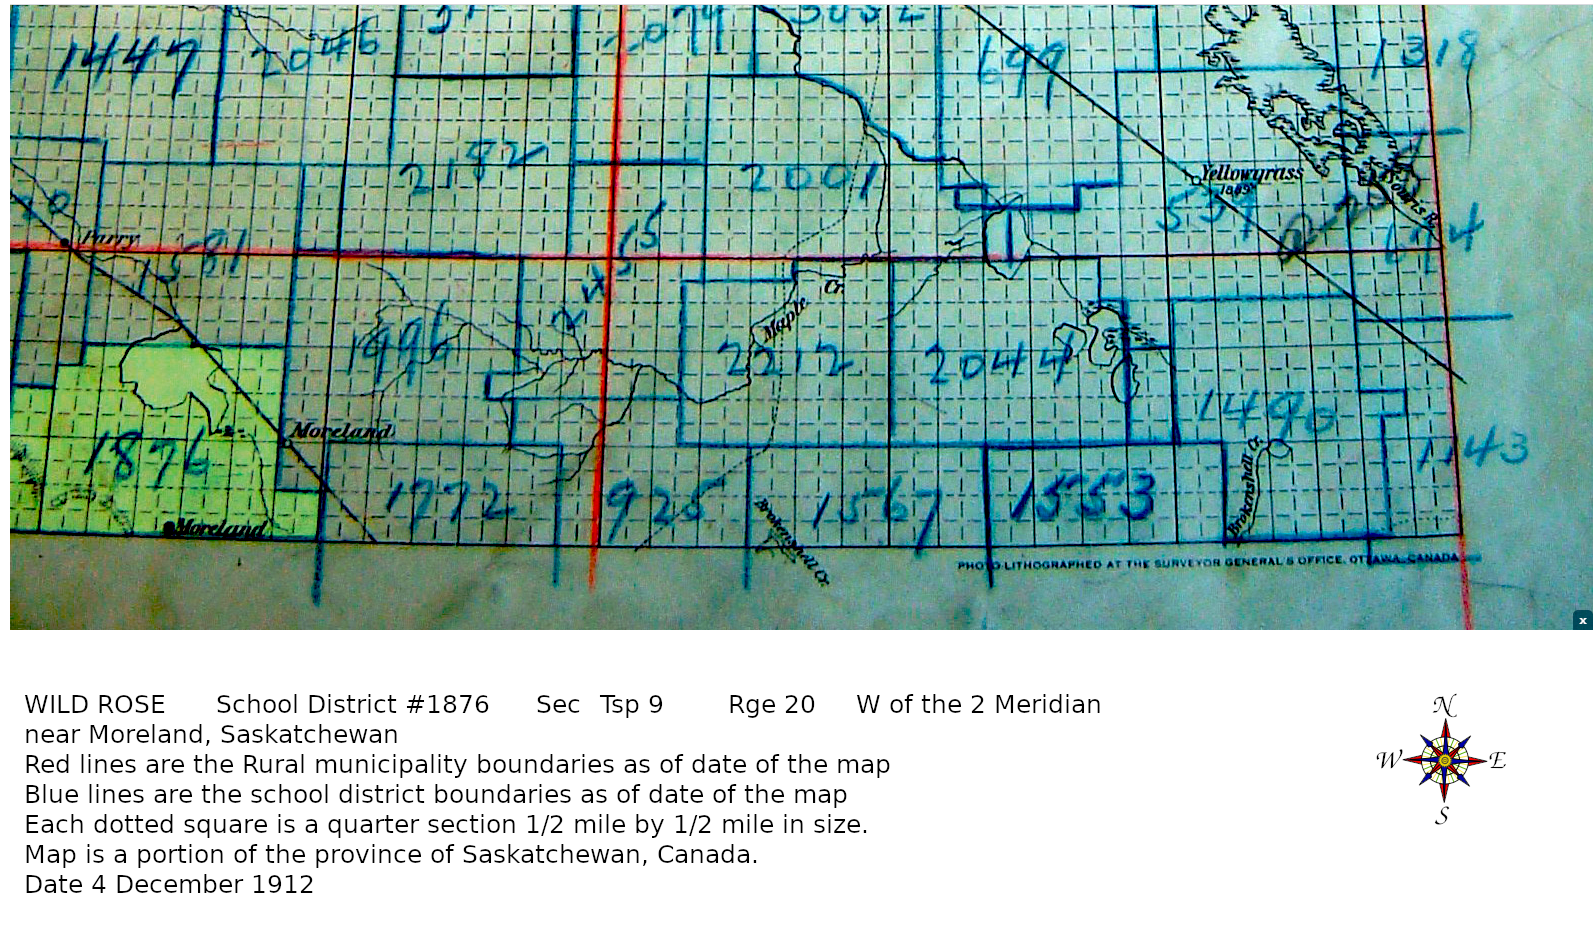 1447
2046
699
1318
2182
2001
Yellowgrass
Souris R.
Parry
1581
Cr.
Maple
1996
2212
2044
1490
Moreland
1876
1143
1772
925
1567
1553
Brokenshell Cr.
Moreland
Brokenshell Cr.
PHOTO-LITHOGRAPHED AT THE SURVEYOR GENERAL'S OFFICE, OTTAWA, CANADA
x
WILD ROSE School District #1876 Sec Tsp 9 Rge 20 W of the 2 Meridian
near Moreland, Saskatchewan
Red lines are the Rural municipality boundaries as of date of the map
Blue lines are the school district boundaries as of date of the map
Each dotted square is a quarter section 1/2 mile by 1/2 mile in size.
Map is a portion of the province of Saskatchewan, Canada.
Date 4 December 1912
N
W E
S